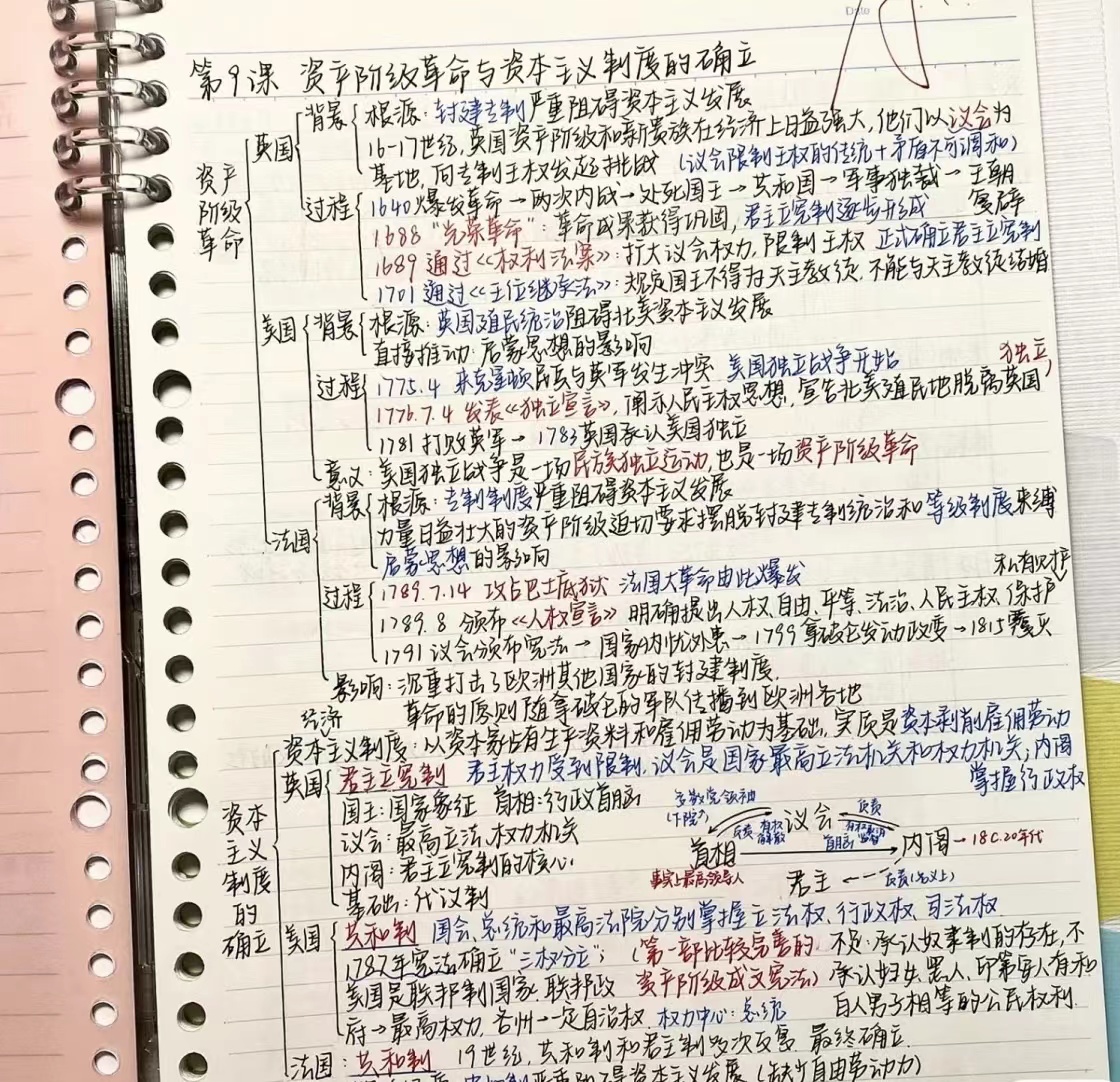 Date
第9课 资产阶级革命与资本主义制度的确立
资产阶级革命
英国
背景
根源:封建专制严重阻碍资本主义发展
16-17世纪,英国资产阶级和新贵族在经济上日益强大,他们以议会为
基地,向专制王权发起挑战 (议会限制王权的传统+矛盾不可调和)
过程
1640爆发革命→两次内战→处死国王→共和国→军事独裁→王朝
复辟
1688“光荣革命”:革命成果获得巩固,君主立宪制逐步形成
1689 通过《权利法案》:扩大议会权力,限制王权 正式确立君主立宪制
1701 通过《王位继承法》:规定国王不得为天主教徒,不能与天主教徒结婚
美国
背景
根源:英国殖民统治阻碍北美资本主义发展
直接推动:启蒙思想的影响
过程
1775.4 来克星顿民兵与英军发生冲突 美国独立战争开始
1776.7.4 发表《独立宣言》,阐示人民主权思想,宣告北美殖民地脱离英国独立
1781打败英军→1783英国承认美国独立
意义:美国独立战争是一场民族独立运动,也是一场资产阶级革命
法国
背景
根源:专制制度严重阻碍资本主义发展
力量日益壮大的资产阶级迫切要求摆脱封建专制统治和等级制度束缚
启蒙思想的影响
过程
1789.7.14 攻占巴士底狱 法国大革命由此爆发
1789.8 颁布《人权宣言》 明确提出人权、自由、平等、法治、人民主权、保护私有财产
1791议会颁布宪法→国家内忧外患→1799拿破仑发动政变→1815覆灭
影响:沉重打击了欧洲其他国家的封建制度.
革命的原则随拿破仑的军队传播到欧洲各地
资本主义制度的确立
经济
资本主义制度:以资本家占有生产资料和雇佣劳动为基础,实质是资本剥削雇佣劳动
英国
君主立宪制 君主权力受到限制,议会是国家最高立法机关和权力机关;内阁
掌握行政权
国王:国家象征 首相:行政首脑
议会:最高立法、权力机关
内阁:君主立宪制的核心
基础:代议制
多数党领袖
(下院)
议会
负责
负责 有权解散
首相
首脑
内阁→18C.20年代
事实上最高领导人
君主 ←- 负责(名义上)
美国
共和制 国会、总统和最高法院分别掌握立法权、行政权、司法权
1787年宪法确立“三权分立”; (第一部比较完善的资产阶级成文宪法)
不足:承认奴隶制的存在,不
承认妇女、黑人、印第安人有和
白人男子相等的公民权利.
美国是联邦制国家,联邦政
府→最高权力,各州→一定自治权. 权力中心:总统
法国:共和制 19世纪,共和制和君主制多次反复,最终确立.
严重阻碍资本主义发展(缺少自由劳动力)